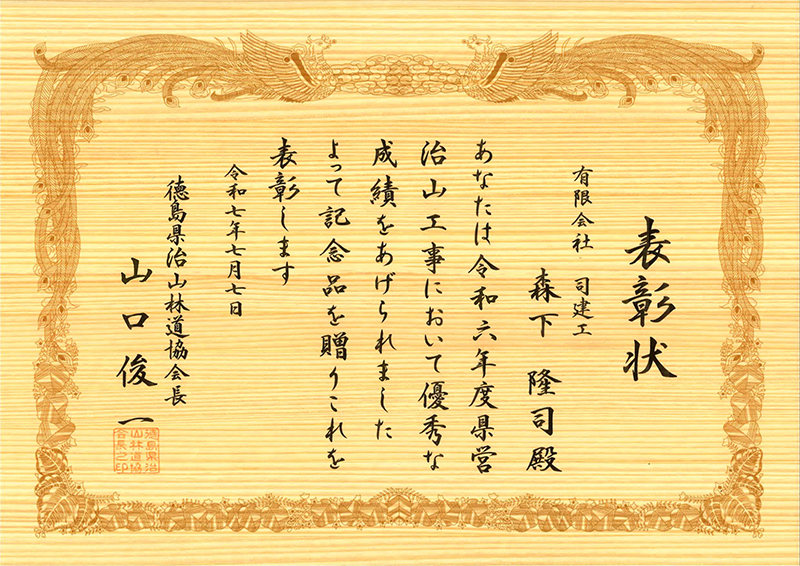 表彰状
有限会社 司建工
森下 隆司殿
あなたは令和六年度県営
治山工事において優秀な
成績をあげられました
よって記念品を贈りこれを
表彰します
令和七年七月七日
徳島県治山林道協会長
山口俊一
徳島県治
山林道協
会長之印